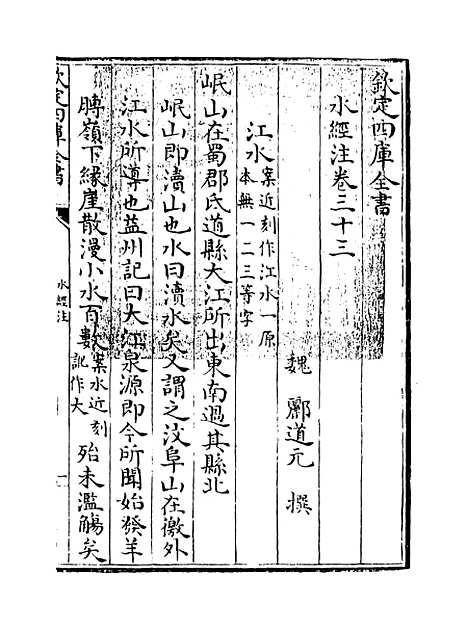 欽定四庫全書
水經注卷三十三
魏 酈道元 撰
江水案近刻作江水一原本無一二三等字
岷山在蜀郡氐道縣大江所出東南過其縣北
岷山即瀆山也水曰瀆水矣又謂之汶阜山在徼外
江水所導也益州記曰大江泉源即今所聞始發羊
膊嶺下緣崖散漫小水百數案水近刻訛作大殆未濫觴矣
欽定四庫全書
水經注
一